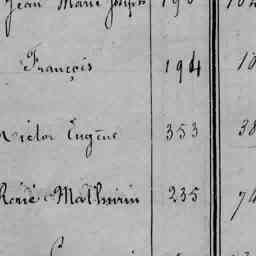 Jean Marie Joseph
François 194
Victor Eugène 353
René Mathurin 235